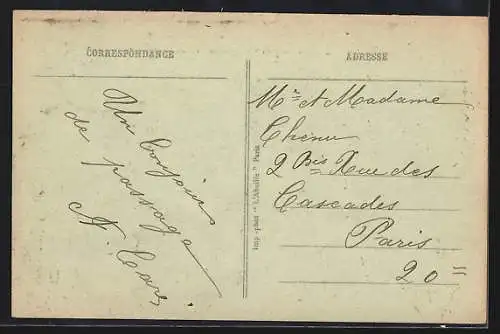 CORRESPONDANCE
Un bonjour
de passage
ADRESSE
Mr et Madame
Chenu
2 Bis Rue des
Cascades
Paris
20=
Imp.-phot "L'Abeille" Paris